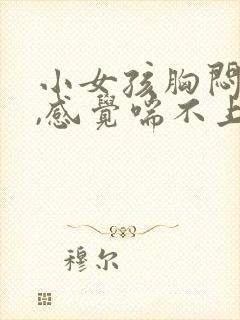 小女孩胸悶
,感覺喘不上
穆尔